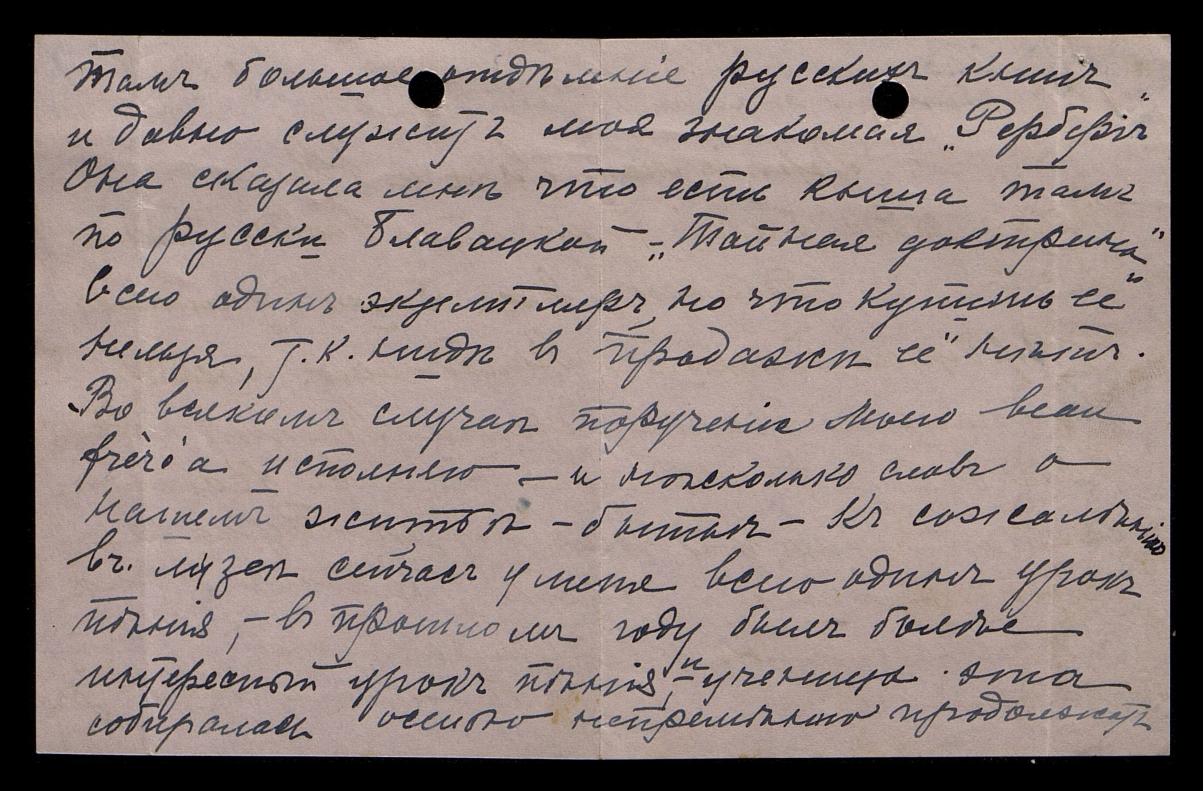 Тамъ большое отдѣленіе русскихъ книгъ
и давно служитъ моя знакомая „Рербергъ"
Она сказала мнѣ что есть книга тамъ
по русски Блавацкой – „Тайная доктрина"
всего одинъ экземпляръ, но что купить ее"
нельзя, т.к. нигдѣ въ продажѣ ее" нѣтъ.
Во всякомъ случаѣ порученіе моего beau
frère'а исполняю – и нѣсколько словъ о
нашемъ житьѣ – бытьѣ – Къ сожалѣнію
въ. сейчасъ у меня всего одинъ урокъ
пѣнія, – въ прошломъ году былъ болѣе
интересный урокъ пѣнія, – и ученица эта
собиралась осенью непремѣнно продолжать